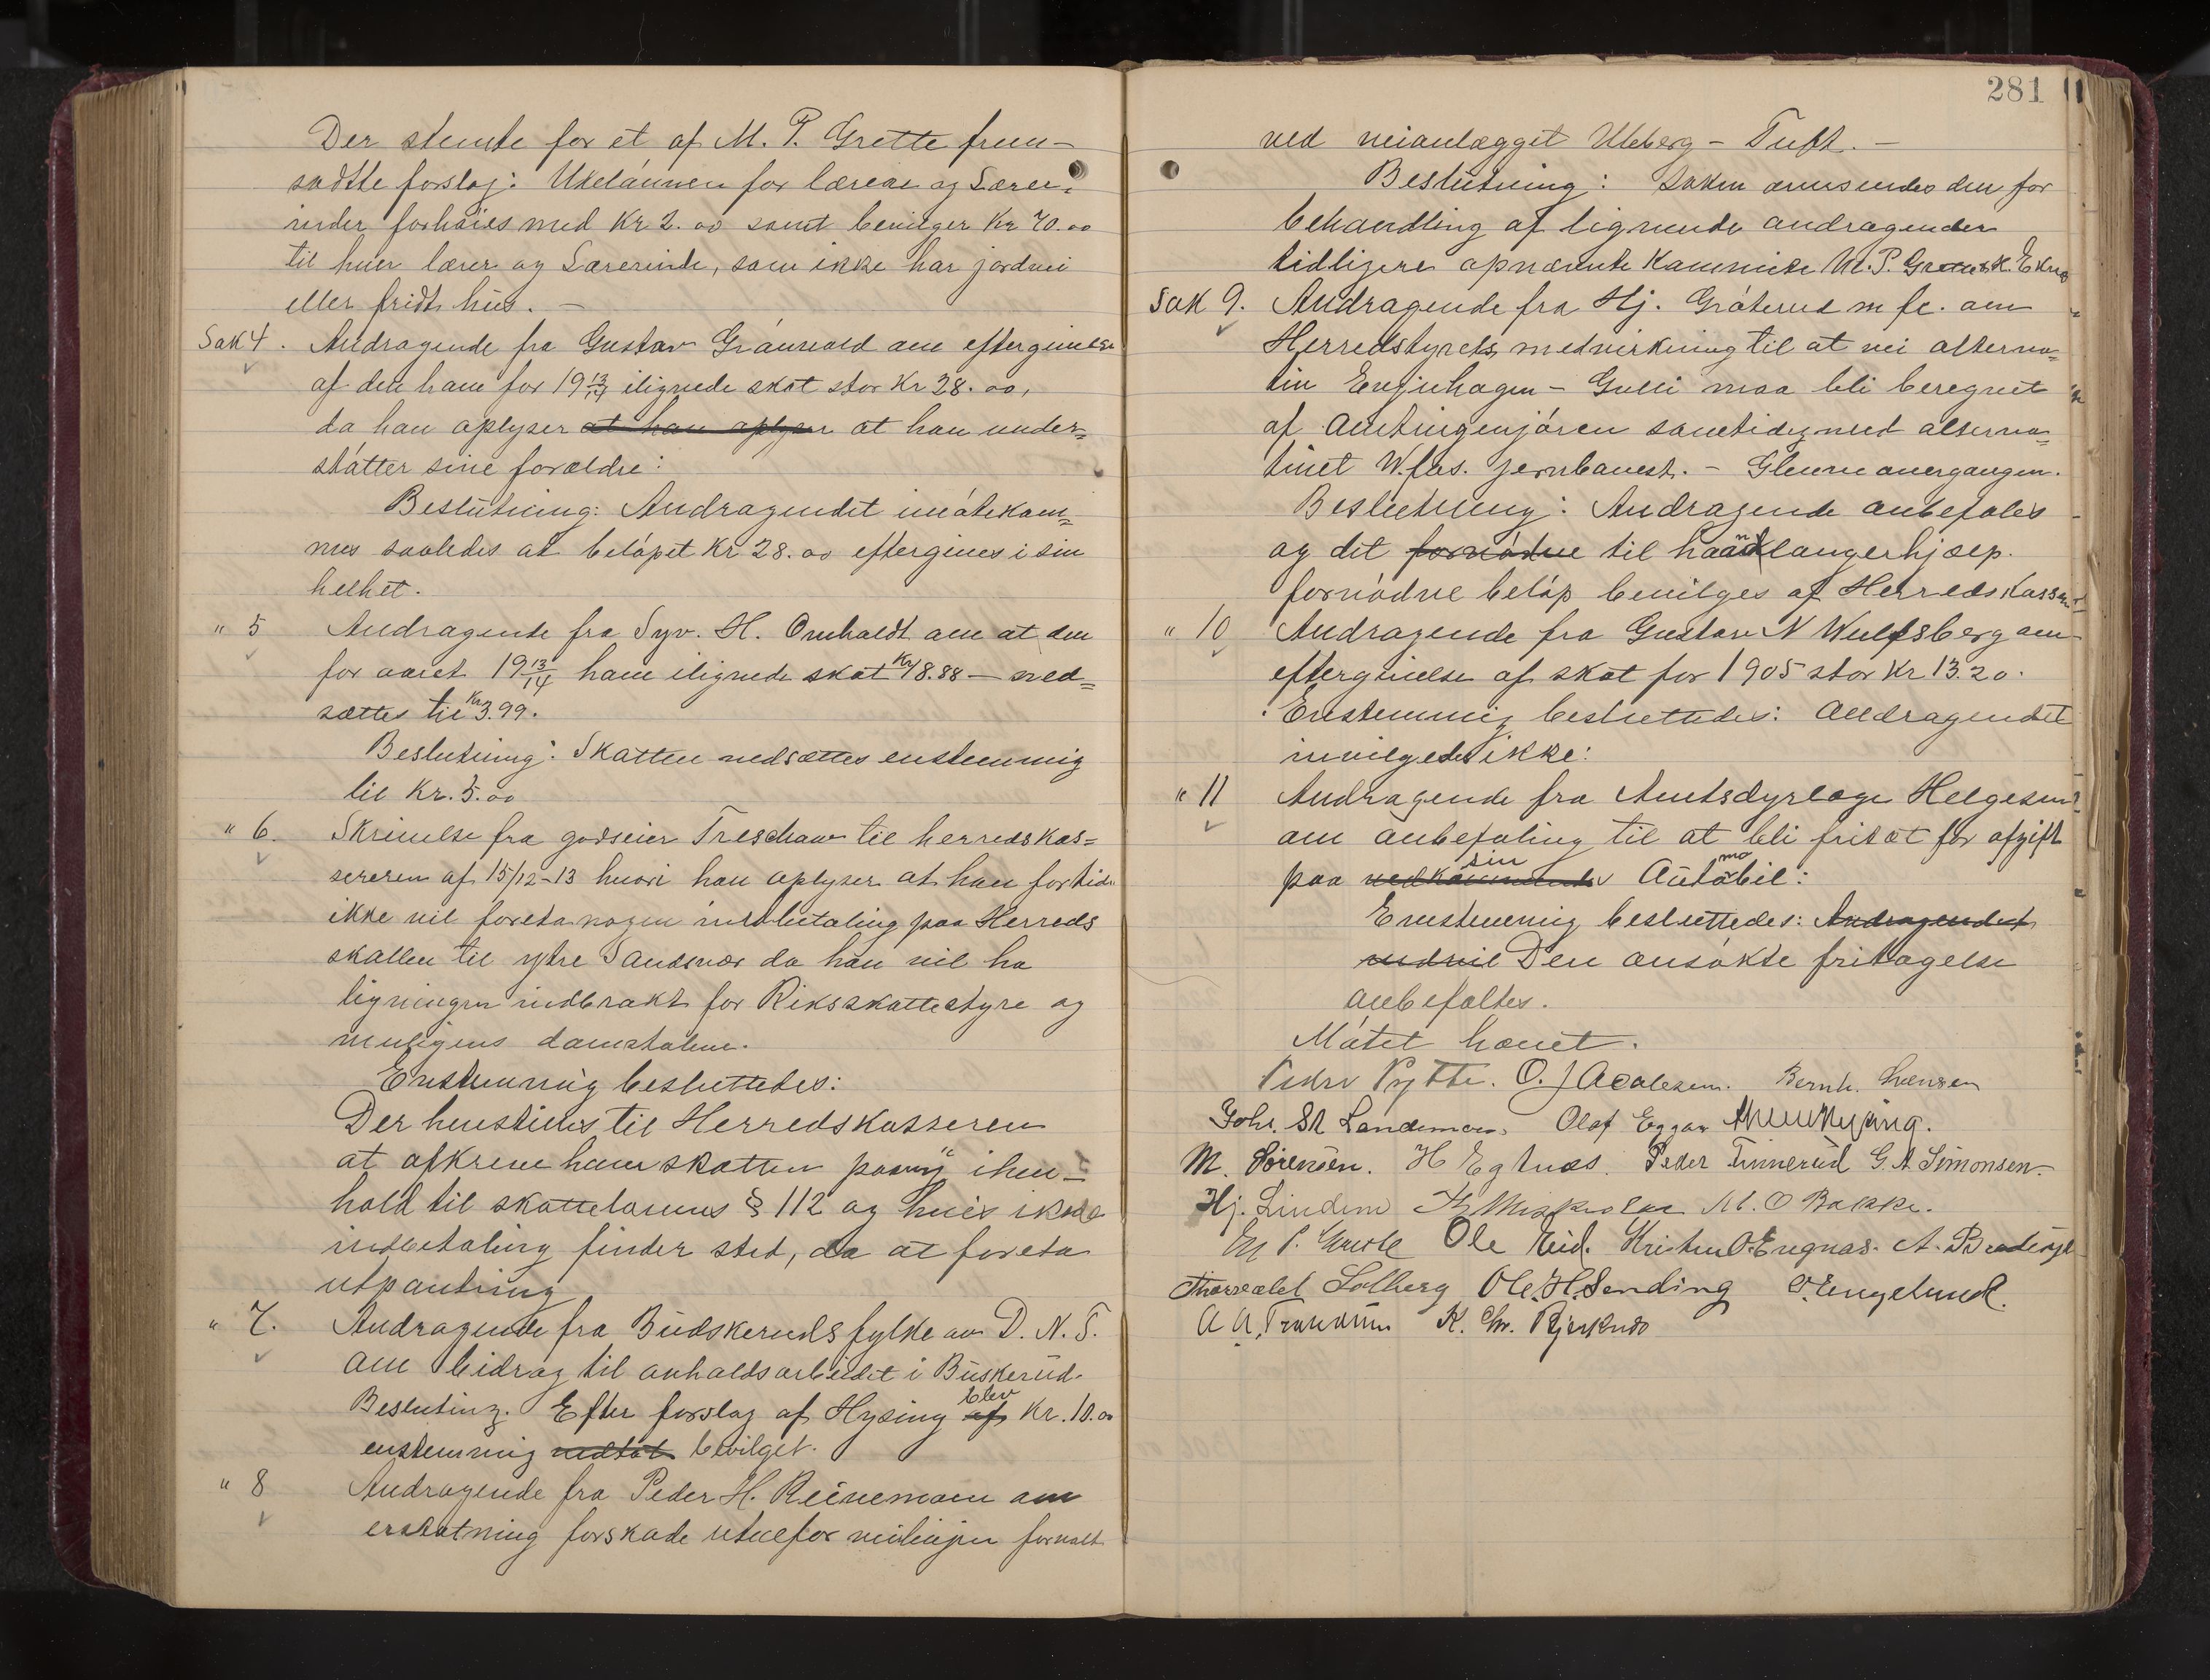 Der stemte for et af M. P. Grette frem-
sadtte forslag: Ukelønnen for lærere og Lærer-
inder forhøies med Kr 2.00 samt bevilger Kr 70.00
til hver lærer og Lærerinde, som ikke har jordvei
eller fridt hus. -
Sak 4. Andragende fra Gustav Grønvold om eftergivelse
af den ham for 19 13/14 ilignede skat stor Kr 28.00,
da han oplyser at han oplyser at han under=
støtter sine forældre:
Beslutning: Andragendet imøtekom=
mes saaledes at beløpet Kr 28.00 eftergives i sin
helhet.
" 5 Andragende fra Syv. H. Omholdt om at den
for aaret 19 13/14 ham ilignede skat Kr 48.88 - ned=
sættes til Kr 3.99.
Beslutning: Skatten nedsættes enstemmig
til Kr. 5.00
" 6. Skrivelse fra godseier Treschow til herredskas=
sereren af 15/12-13 hvori han oplyser at han for tiden
ikke vil foreta nogen indbetaling paa Herreds
skatten til ytre Sandsvær da han vil ha
ligningen indbrakt for Riksskattestyre og
muligens domstolene.
Enstemmig besluttedes:
Der henstilles til Herredskasseren
at afkreve ham skatten paany i hen-
hold til skattelovens § 112 og hvis ikke
indbetaling finder sted, da at foreta
utpantning
" 7. Andragende fra Budskeruds fylke av D. N. T.
om bidrag til avholdsarbeidet i Buskerud.
Besluting. Efter forslag af Hysing af blev Kr. 10.00
enstemmig vedtat bevilget.
" 8 Andragende fra Peder H. Reinemoen om
erstatning for skade utenfor veilinjen forvolt
281
ved veianlægget Uleberg - Tuft. -
Beslutning: Saken oversendes den for
behandling af lignende andragender
tidligere opnævnte Kommite M. P. Grette & K. Ekna
Sak 9. Andragende fra Hj. Gråterud m fl. om
Herredstyrets medvirkning til at vei alterna=
tiv Engjuhagen - Gulli maa bli beregnet
af Amtingenjøren samtidig med alterna=
tivet W.fos. jernbanest. - Glenne overgangen.
Beslutning: Andragende anbefales
og det fornødne til haandlangerhjælp.
fornødne beløp bevilges af Herredskassen
" 10 Andragende fra Gustav N Wulfsberg om
eftergivelse af skat for 1905 stor Kr 13.20.
Enstemmig besluttedes: Andragendet
invilgedes ikke:
" 11 Andragende fra Amtsdyrlæge Helgesen
om anbefaling til at bli fritat for afgift
paa vedkommende sin Automobil:
Enstemmig besluttedes: Andragendet
Den ansøkte fritagelse
anbefaltes.
Møtet hævet.
Peder Pytte. O. J Aaalesen. Bernh. Svensen
Johs. St Landemoen. Olaf Eggar Hysing.
M. Sørensen. H Egtnæs. Peder Tinnerud G. A Simonsen.
Hj. Lindem M. O Bakke.
M P. Grette Ole Eid. Kristen O. Engnæs. A.
Thorvald Solberg Ole. H. Sending O. Engelund.
A A. Trandum K. Chr. Bjerknes